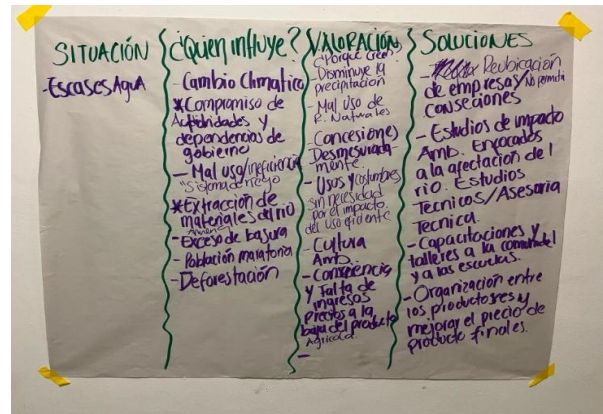 SITUACIÓN
-Escases Agua
¿Quien influye?
- Cambio Climatico
*Compromiso de
Autoridades y
dependencias de
gobierno
- Mal uso/ineficiencia
"Sistema de riego
*Extracción de
materiales del rio
-Exceso de basura
- Población maratonia
- Deforestación
VALORACIÓN
¿Porqué creo?
- Disminuye la
precipitación
- Mal uso de
R. Naturales
- Concesiones
Desmesurada-
mente.
- Usos y costumbres
sin necesidad
por el impacto
del uso eficiente
- Cultura
Amb.
- Consciencia
y Falta de
ingresos
Precios a la
baja del producto
Agricola.
-
SOLUCIONES
- Reubicación
de empresas/No permitir
conseciones
- Estudios de impacto
Amb. Enfocados
a la afectación del
rio. Estudios
Tecnicos/Asesoria
Tecnica.
- Capacitaciones y
talleres a la comunidad
y a las escuelas.
- Organización entre
los productores y
mejorar el precio de
producto finales.